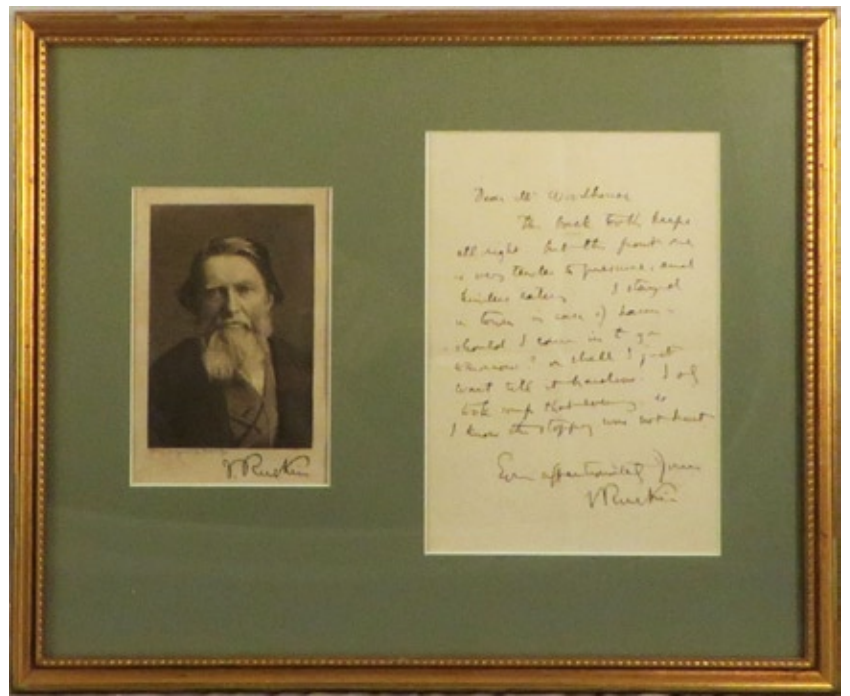 J. Ruskin
Dear Mr Woodhouse
The back tooth keeps
all right but the front one
is very tender to pressure, and
hinders eating I stayed
in town in case of harm -
should I come in to you
tomorrow? or shall I just
wait till it hardens. I only
took soup that evening, so
I know the stopping was not hurt
Ever affectionately Yours
J Ruskin